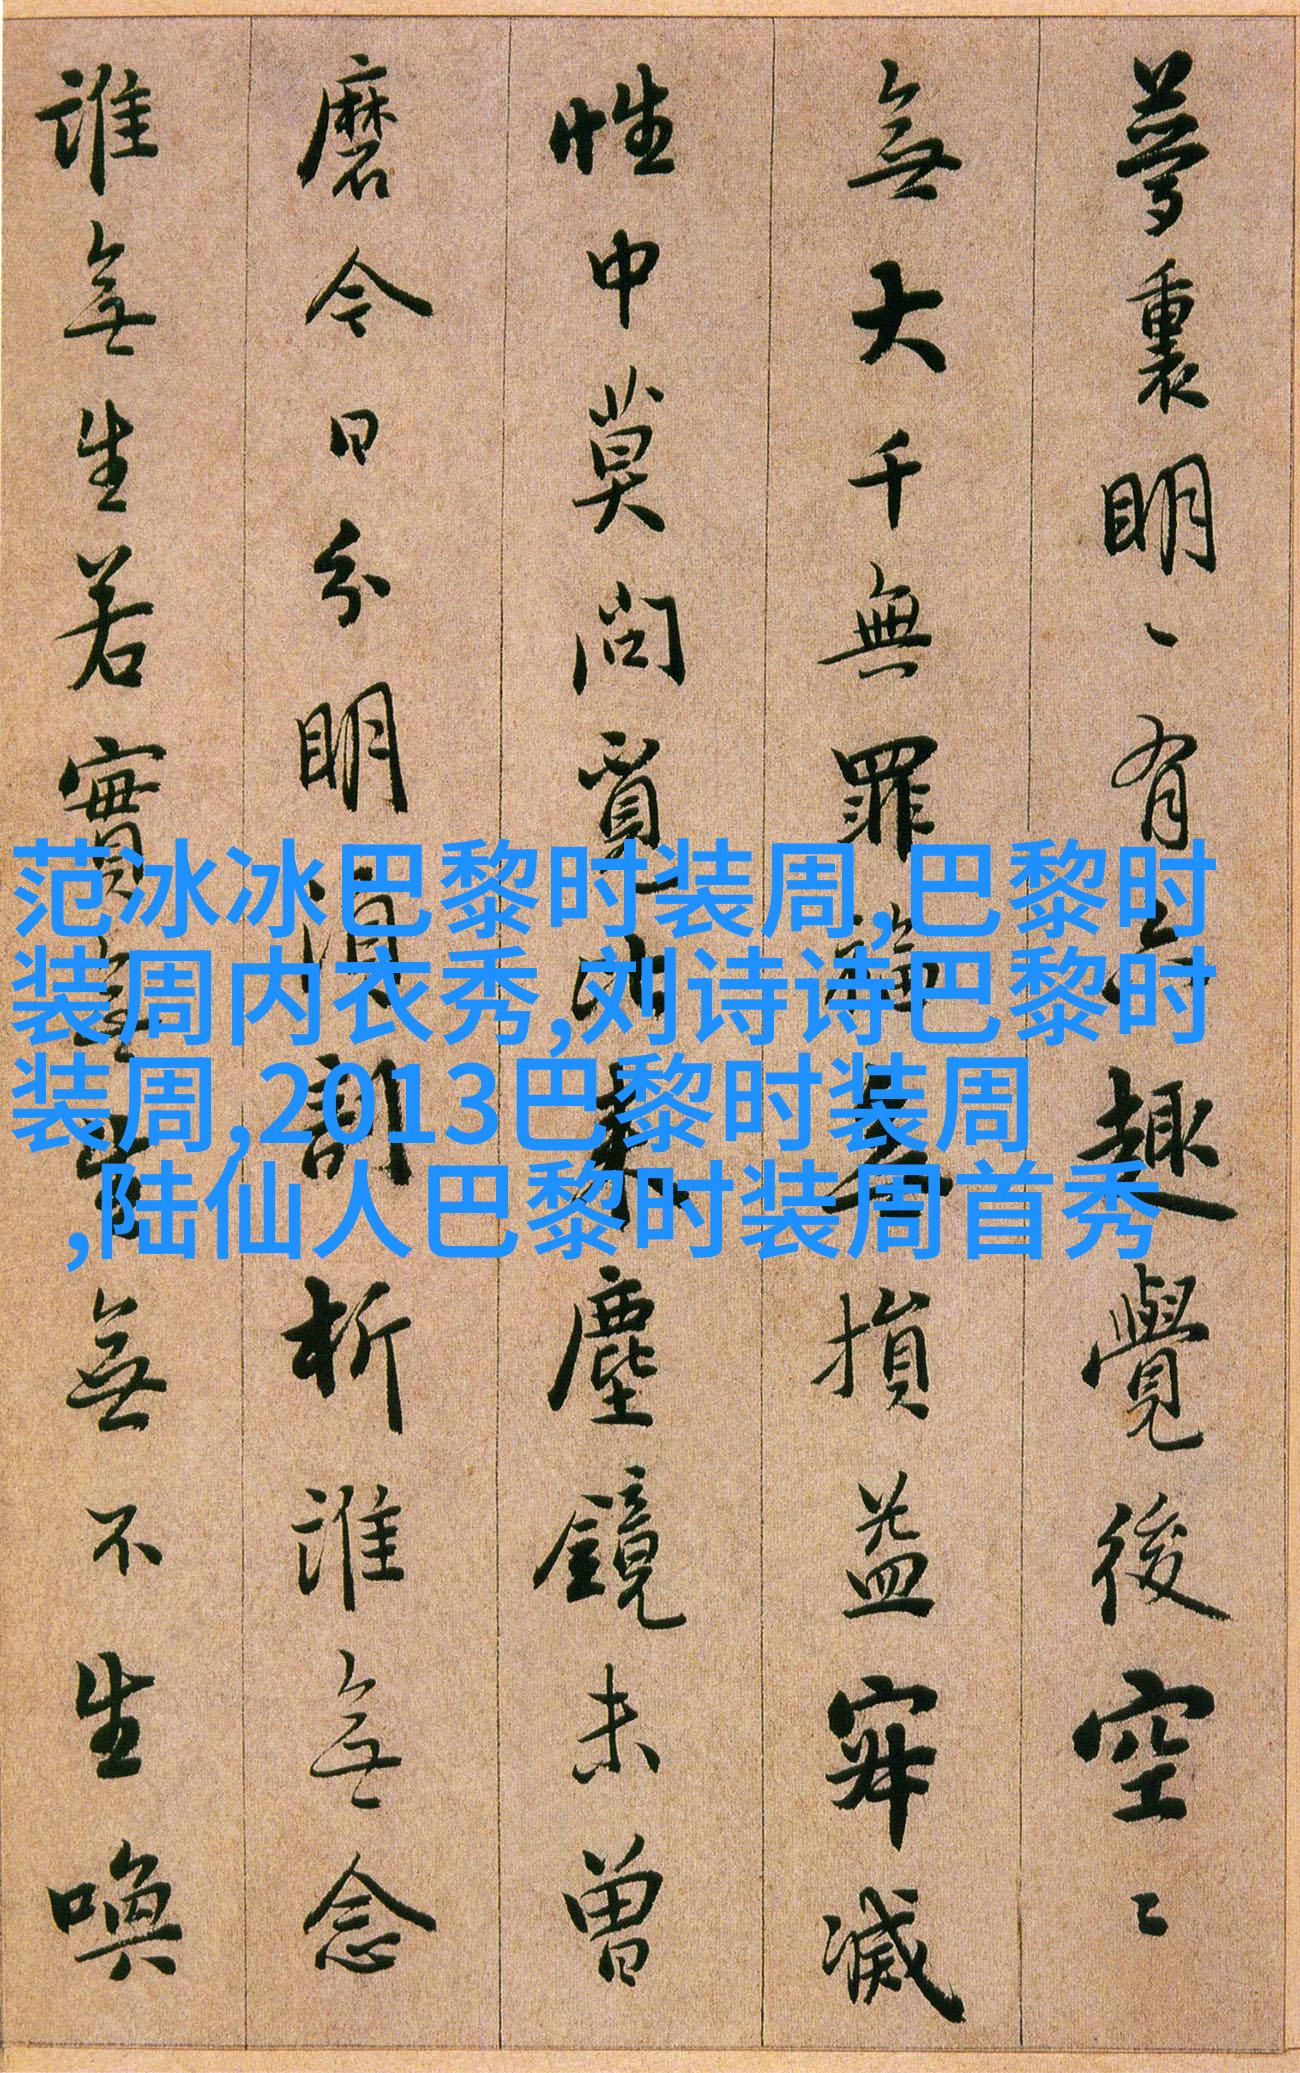 夢裏明〻有六趣覺後空〻
無大千無罪福無損益寂滅
性中莫問覓比來塵鏡未曾
磨今日分明須剖析誰無念
誰無生若實無生無不生喚
范冰冰巴黎时装周,巴黎时
装周内衣秀,刘诗诗巴黎时
装周,2013巴黎时装周
,陆仙人巴黎时装周首秀